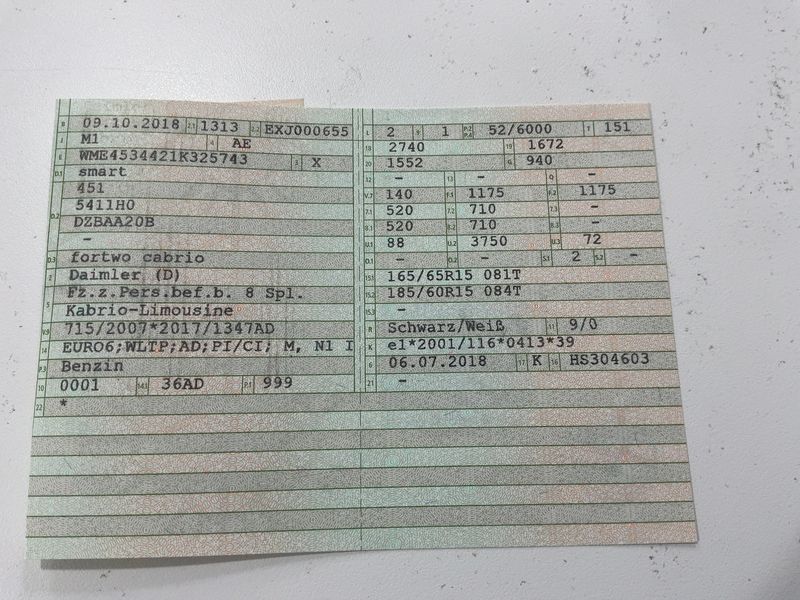 B 09.10.2018 2.1 1313 2.2 EXJ000655
J M1 4 AE
E WME4534421K325743 3 X
D.1 smart
451
D.2 5411H0
DZBAA20B
–
D.3 fortwo cabrio
2 Daimler (D)
5 Fz.z.Pers.bef.b. 8 Spl.
Kabrio-Limousine
V.9 715/2007*2017/1347AD
14 EURO6;WLTP;AD;PI/CI; M, N1 I
P.3 Benzin
10 0001 14.1 36AD P.1 999
22 *
L 2 9 1 P.2 P.4 52/6000 T 151
18 2740 19 1672
20 1552 G 940
12 – 13 – Q –
V.7 140 F.1 1175 F.2 1175
7.1 520 7.2 710 7.3 –
8.1 520 8.2 710 8.3 –
U.1 88 U.2 3750 U.3 72
O.1 – O.2 – S.1 2 S.2 –
15.1 165/65R15 081T
15.2 185/60R15 084T
15.3 –
R Schwarz/Weiß 11 9/0
K e1*2001/116*0413*39
6 06.07.2018 17 K 16 HS304603
21 –